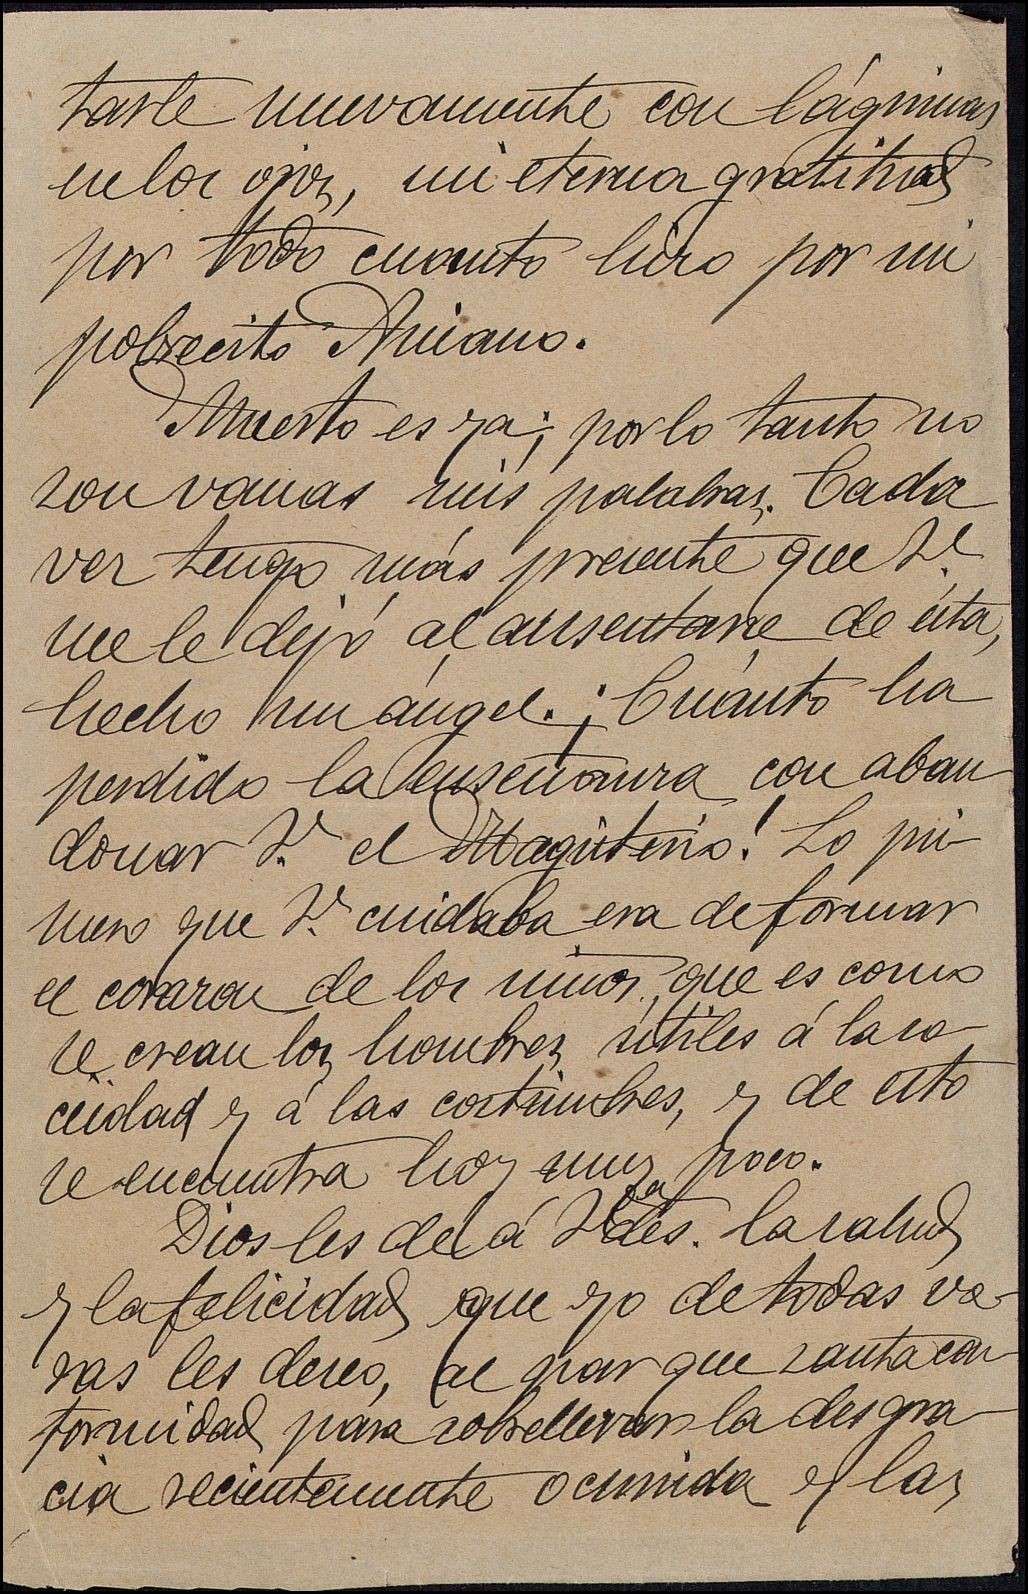 tarle nuevamente con lágrimas
en los ojos, mi eterna gratitud
por todo cuanto hizo por mi
pobrecito Aniano.
Muerto es ya; por lo tanto no
son vanas mis palabras. Cada
vez tengo más presente que V.
me le dejó al ausentarse de ésta,
hecho un ángel. ¡Cuánto ha
perdido la enseñanza con aban-
donar V. el Magisterio! Lo pri-
mero que V. cuidaba era de formar
el corazon de los niños, que es como
se crean los hombres útiles á la so-
ciedad y á las costumbres, y de esto
se encuentra hoy muy poco.
Dios les de á Vdes. la salud
y la felicidad que yo de todas ve-
ras les deseo, al par que santa con-
formidad para sobrellevar la desgra-
cia recientemente ocurrida y las